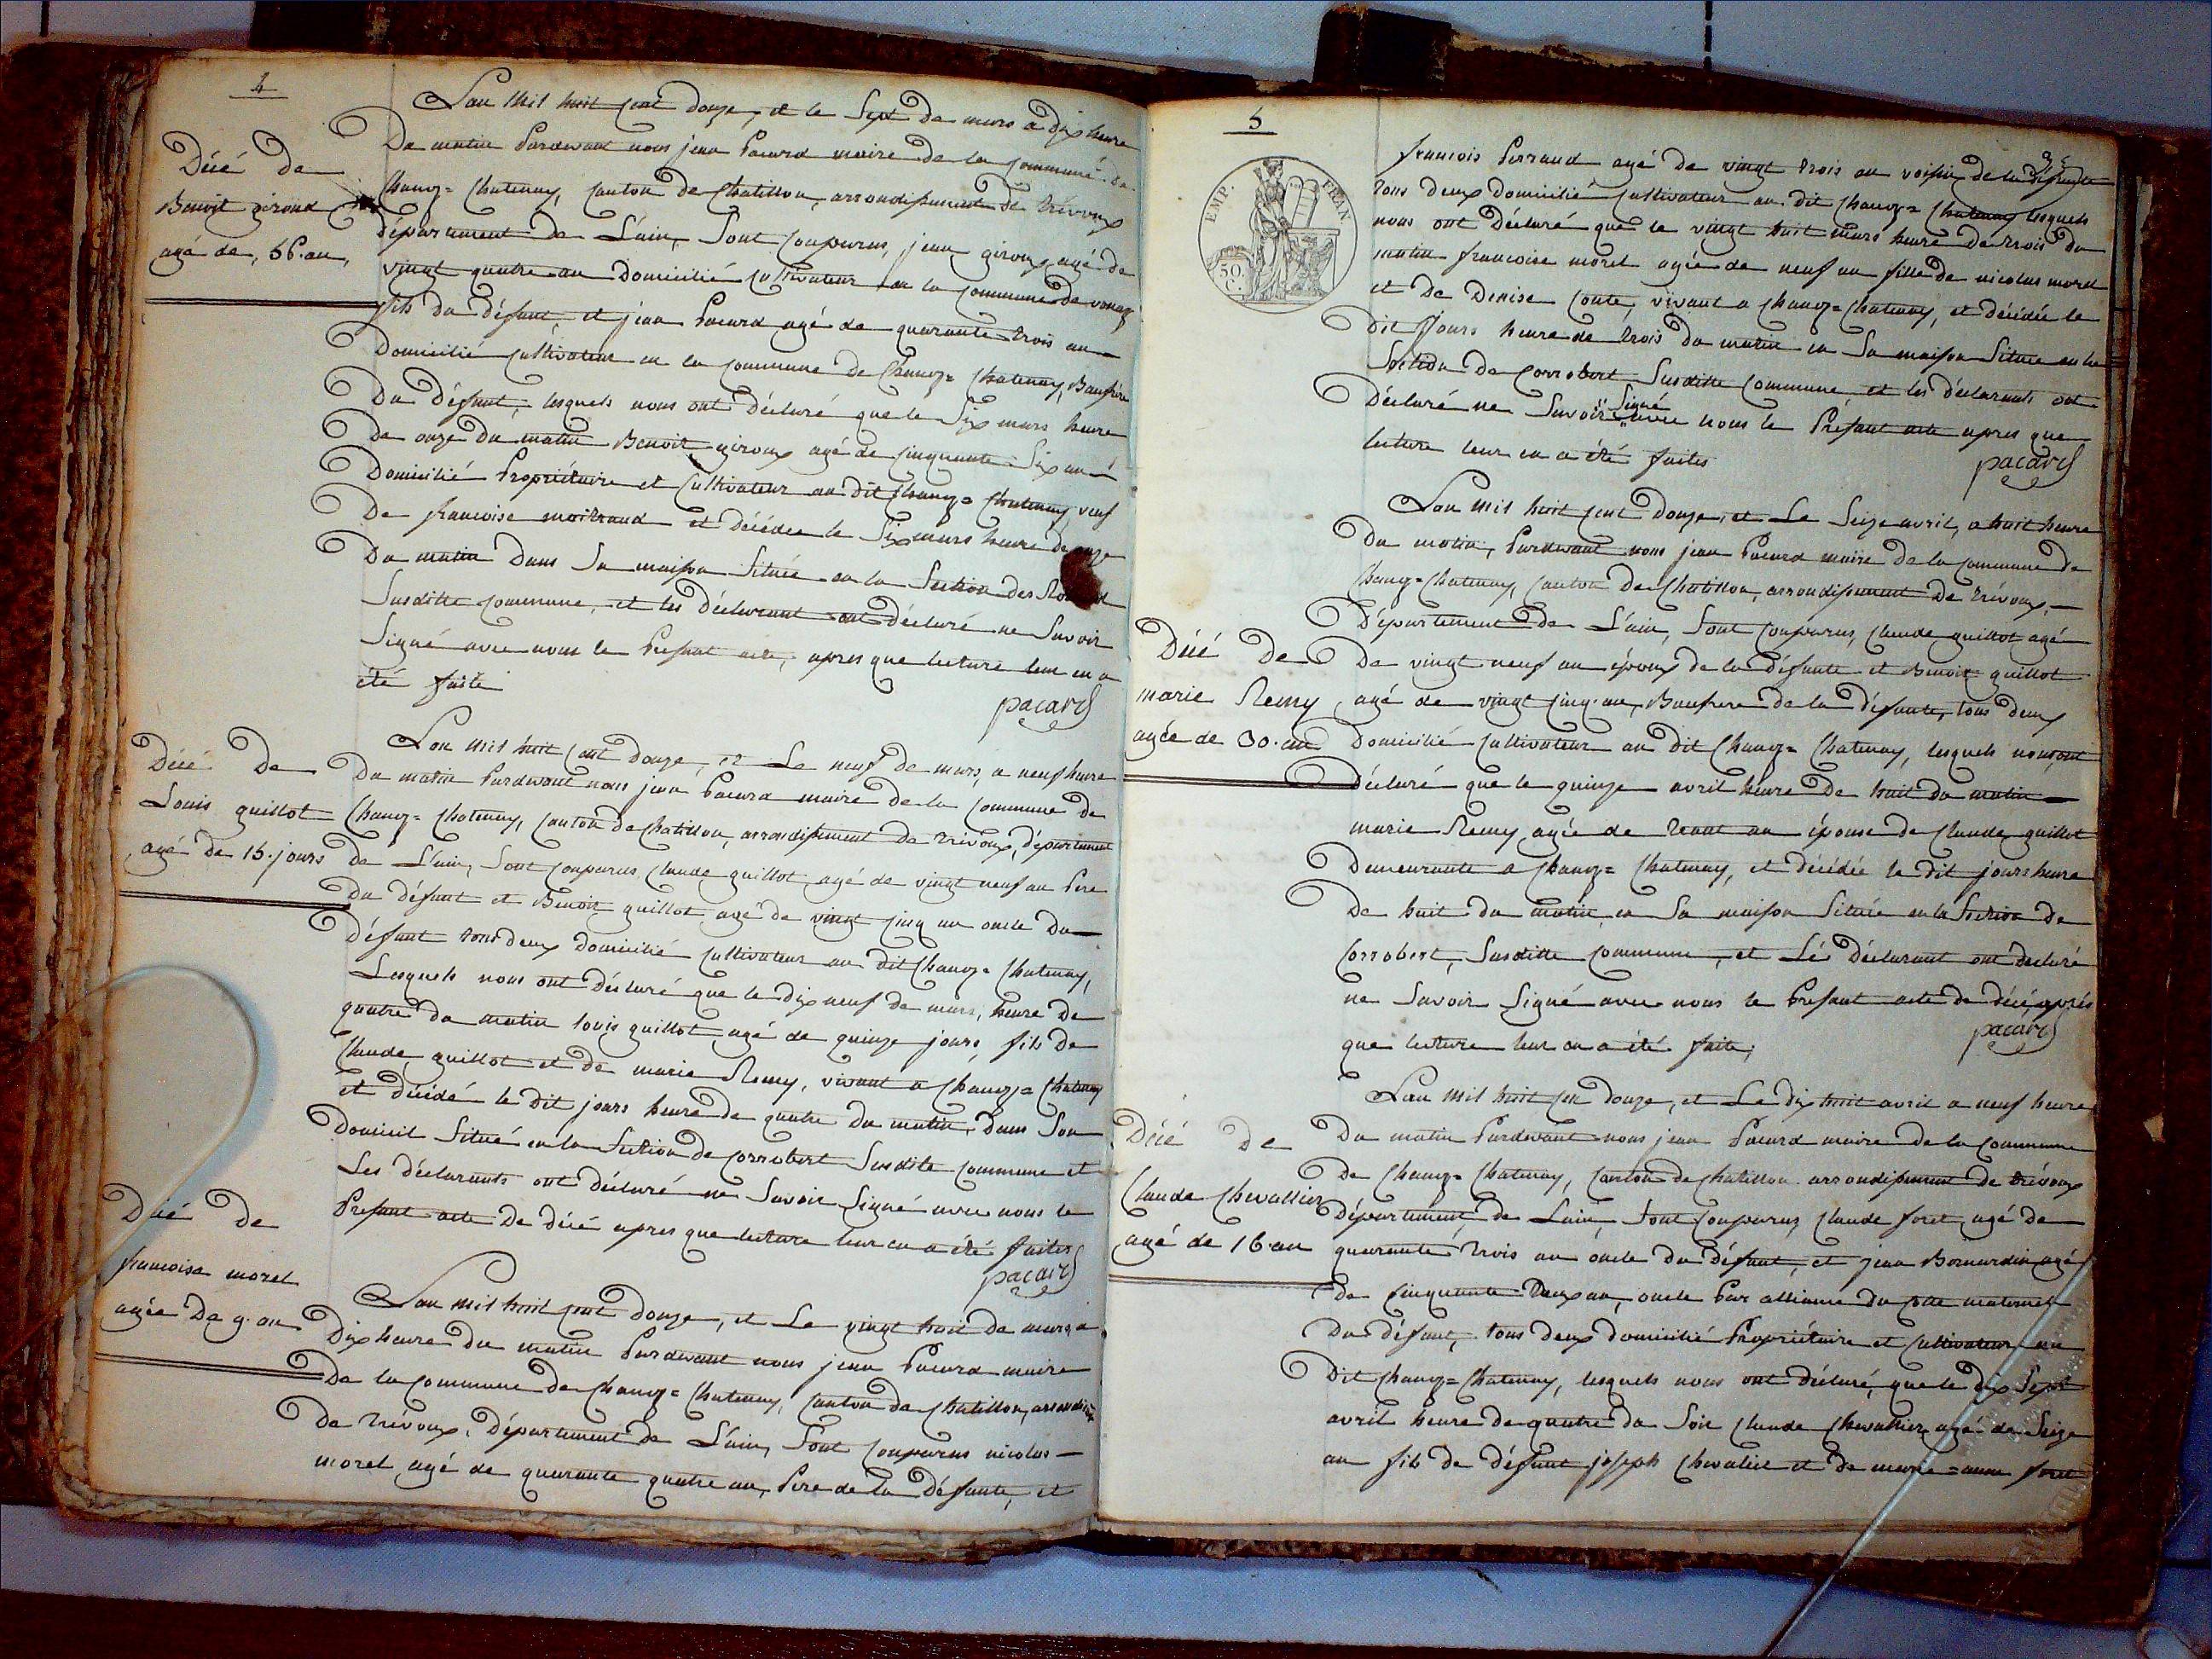 4
Décé de
Benoit giroud
agé de, 56. an,
L'an Mil huit Cent douze, et le Sept de mars a dix heure
Du matin Pardevant nous jean Pacard maire de la Commune de
Chanoz= Chatenay, Canton de Chatillon, arrondissement de trévoux
département de L'ain, Sont Comparus, jean giroux agé de
vingt quatre an Domicilié Cultivateur en la Commune de vonnaz
fils du défunt, et jean Pacard agé de quarante trois an
Domicilié Cultivateur en la Commune de Chanoz= Chatenay, Baufrère
Du Défunt, lesquels nous ont Déclaré que le Six mars heure
De onze du matin Benoit giroux agé de Cinquante Six an
Domicilié Propriétaire et Cultivateur au dit Chanoz= Chatenay, veuf
De francoise moitraud et Décédee le Six mars heure de onze
Du matin Dans Sa maison Située en la Section des
Susditte Commune, et les Déclarant ont déclaré ne Savoir
Signé avec nous le Present acte, apres que lecture leur en a
été faite
pacard
Décé De
Louis guillot
agé de 15. jours
L'an Mil huit Cent Douze, et Le neuf de mars, a neuf heure
Du matin Pardevant nous jean Pacard maire de la Commune De
Chanoz= Chatenay, Canton de Chatillon, arrondissement de trévoux, département
de L'ain, Sont Comparus Claude guillot agé de vingt neuf an Pere
Du défunt et Benoit guillot agé de vingt Cinq an oncle Du
défunt tous deux Domicilié Cultivateur au dit Chanoz= Chatenay,
Lesquels nous ont Déclaré que le dix neuf de mars, heure De
quatre du matin louis guillot agé de quinze jours fils De
Claude guillot et de marie Remy, vivant a Chanoz= Chatenay
et décédé le dit jours heure de quatre Du matin, Dans Son
Domicil Situé en la Section de Corrobert Susdite Commune et
Les déclarants ont déclaré ne Savoir Signé avec nous le
Present acte De décé apres que lecture leur en a été faites
pacard
Décé de
francoise morel
agée De 9. an
L'an Mil huit Cent Douze, et Le vingt huit De mars a
Dix heure Du matin Pardevant nous jean Pacard maire
De la Commune De Chanoz= Chatenay, Canton de Chatillon,
De trévoux, Département De L'ain, Sont Comparus nicolas
morel agé de quarante quatre an, Pere de la Défunte, et
5
EMP. FRAN
50. C.
francois Perraud agé de vingt trois an voisin de la défunte
tous deux Domicilié Cultivateur au dit Chanoz= Chatenay lesquels
nous ont Déclaré que le vingt huit mars heure De trois Du
matin francoise morel agée de neuf an fille de nicolas morel
et De Denise Conte, vivant a Chanoz= Chatenay, et décédée le
Dit Jours heure de trois Du matin en Sa maison Située en la
Section De Corrobert Susditte Commune, et les déclarants ont
Déclaré ne Savoir Signé avec nous le Présant acte apres que
lecture leur en a été faites
pacard
L'an Mil huit Cent Douze, et Le Seize avril, a huit heure
Du matin, Pardevant nous jean Pacard maire De la Commune de
Chanoz= Chatenay, Canton De Chatillon, arrondissement De trévoux,
Département De L'ain, Sont Comparus, Claude guillot agé
Décé De
marie Remy
agée de 30. an
De vingt neuf an époux de la Défunte et Benoit guillot
agé de vingt Cinq an, Baufrere De la Défunte, tous Deux
Domicilié Cultivateur au dit Chanoz= Chatenay, lesquels nous ont
déclaré que le quinze avril heure De huit Du matin
marie Remy agée de trent an épouse de Claude guillot
Demeurante a Chanoz= Chatenay, et décédée le dit jours heure
De huit Du matin en Sa maison Située en la Section De
Corrobert, Susditte Commune, et Lés Déclarant ont déclaré
ne Savoir Signé avec nous le Présant acte de décé, aprés
que lecture leur en a été faite,
pacard
L'an Mil huit Cen douze, et Le Dix huit avril a neuf heure
Décé De
Claude Chevallier
agé de 16 an
Du matin Pardevant nous jean Pacard maire de la Commune
De Chanoz= Chatenay, Canton de Chatillon arrondissement de trévoux
Département De Lain, Sont Comparus, Claude foret agé De
quarante trois an oncle Du Défunt, et jean Bernardin agé
De Cinquante Deux an, oncle Par alliance Du coté maternel
Du défunt, tous Deux domicilié Propriétaire et Cultivateur au
Dit Chanoz= Chatenay, lesquels nous ont Déclaré, que le dix Sept
avril heure De quatre Du Soir Claude Chevallier agé de Seize
an fils De défunt joseph Chevalier et De marie=anne foret